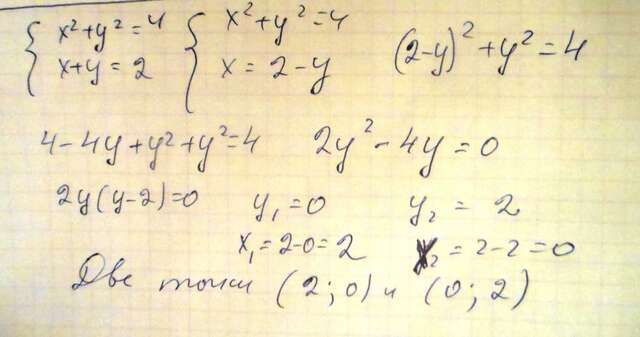 { x²+y²=4 { x²+y²=4 (2-y)²+y²=4
x+y=2 x=2-y
4-4y+y²+y²=4 2y²-4y=0
2y(y-2)=0 y₁=0 y₂=2
x₁=2-0=2 x₂=2-2=0
Две точки (2;0) и (0;2)